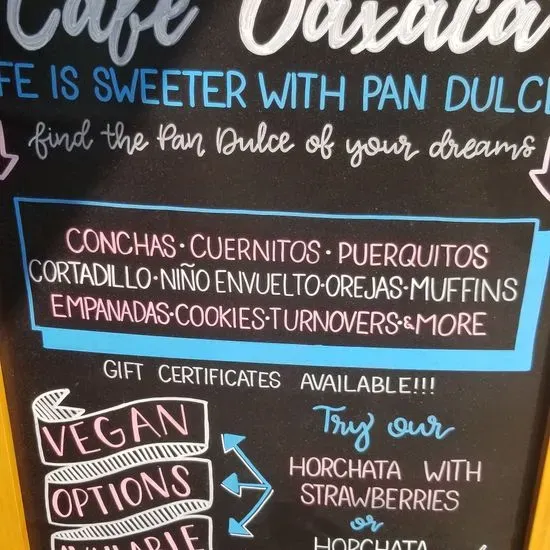 Café Oaxaca
FE IS SWEETER WITH PAN DULC
find the Pan Dulce of your dreams
CONCHAS · CUERNITOS · PUERQUITOS
CORTADILLO · NIÑO ENVUELTO · OREJAS · MUFFINS
EMPANADAS · COOKIES · TURNOVERS · & MORE
GIFT CERTIFICATES AVAILABLE!!!
VEGAN
OPTIONS
AVAILABLE
Try our
HORCHATA WITH
STRAWBERRIES
or
HORCHATA